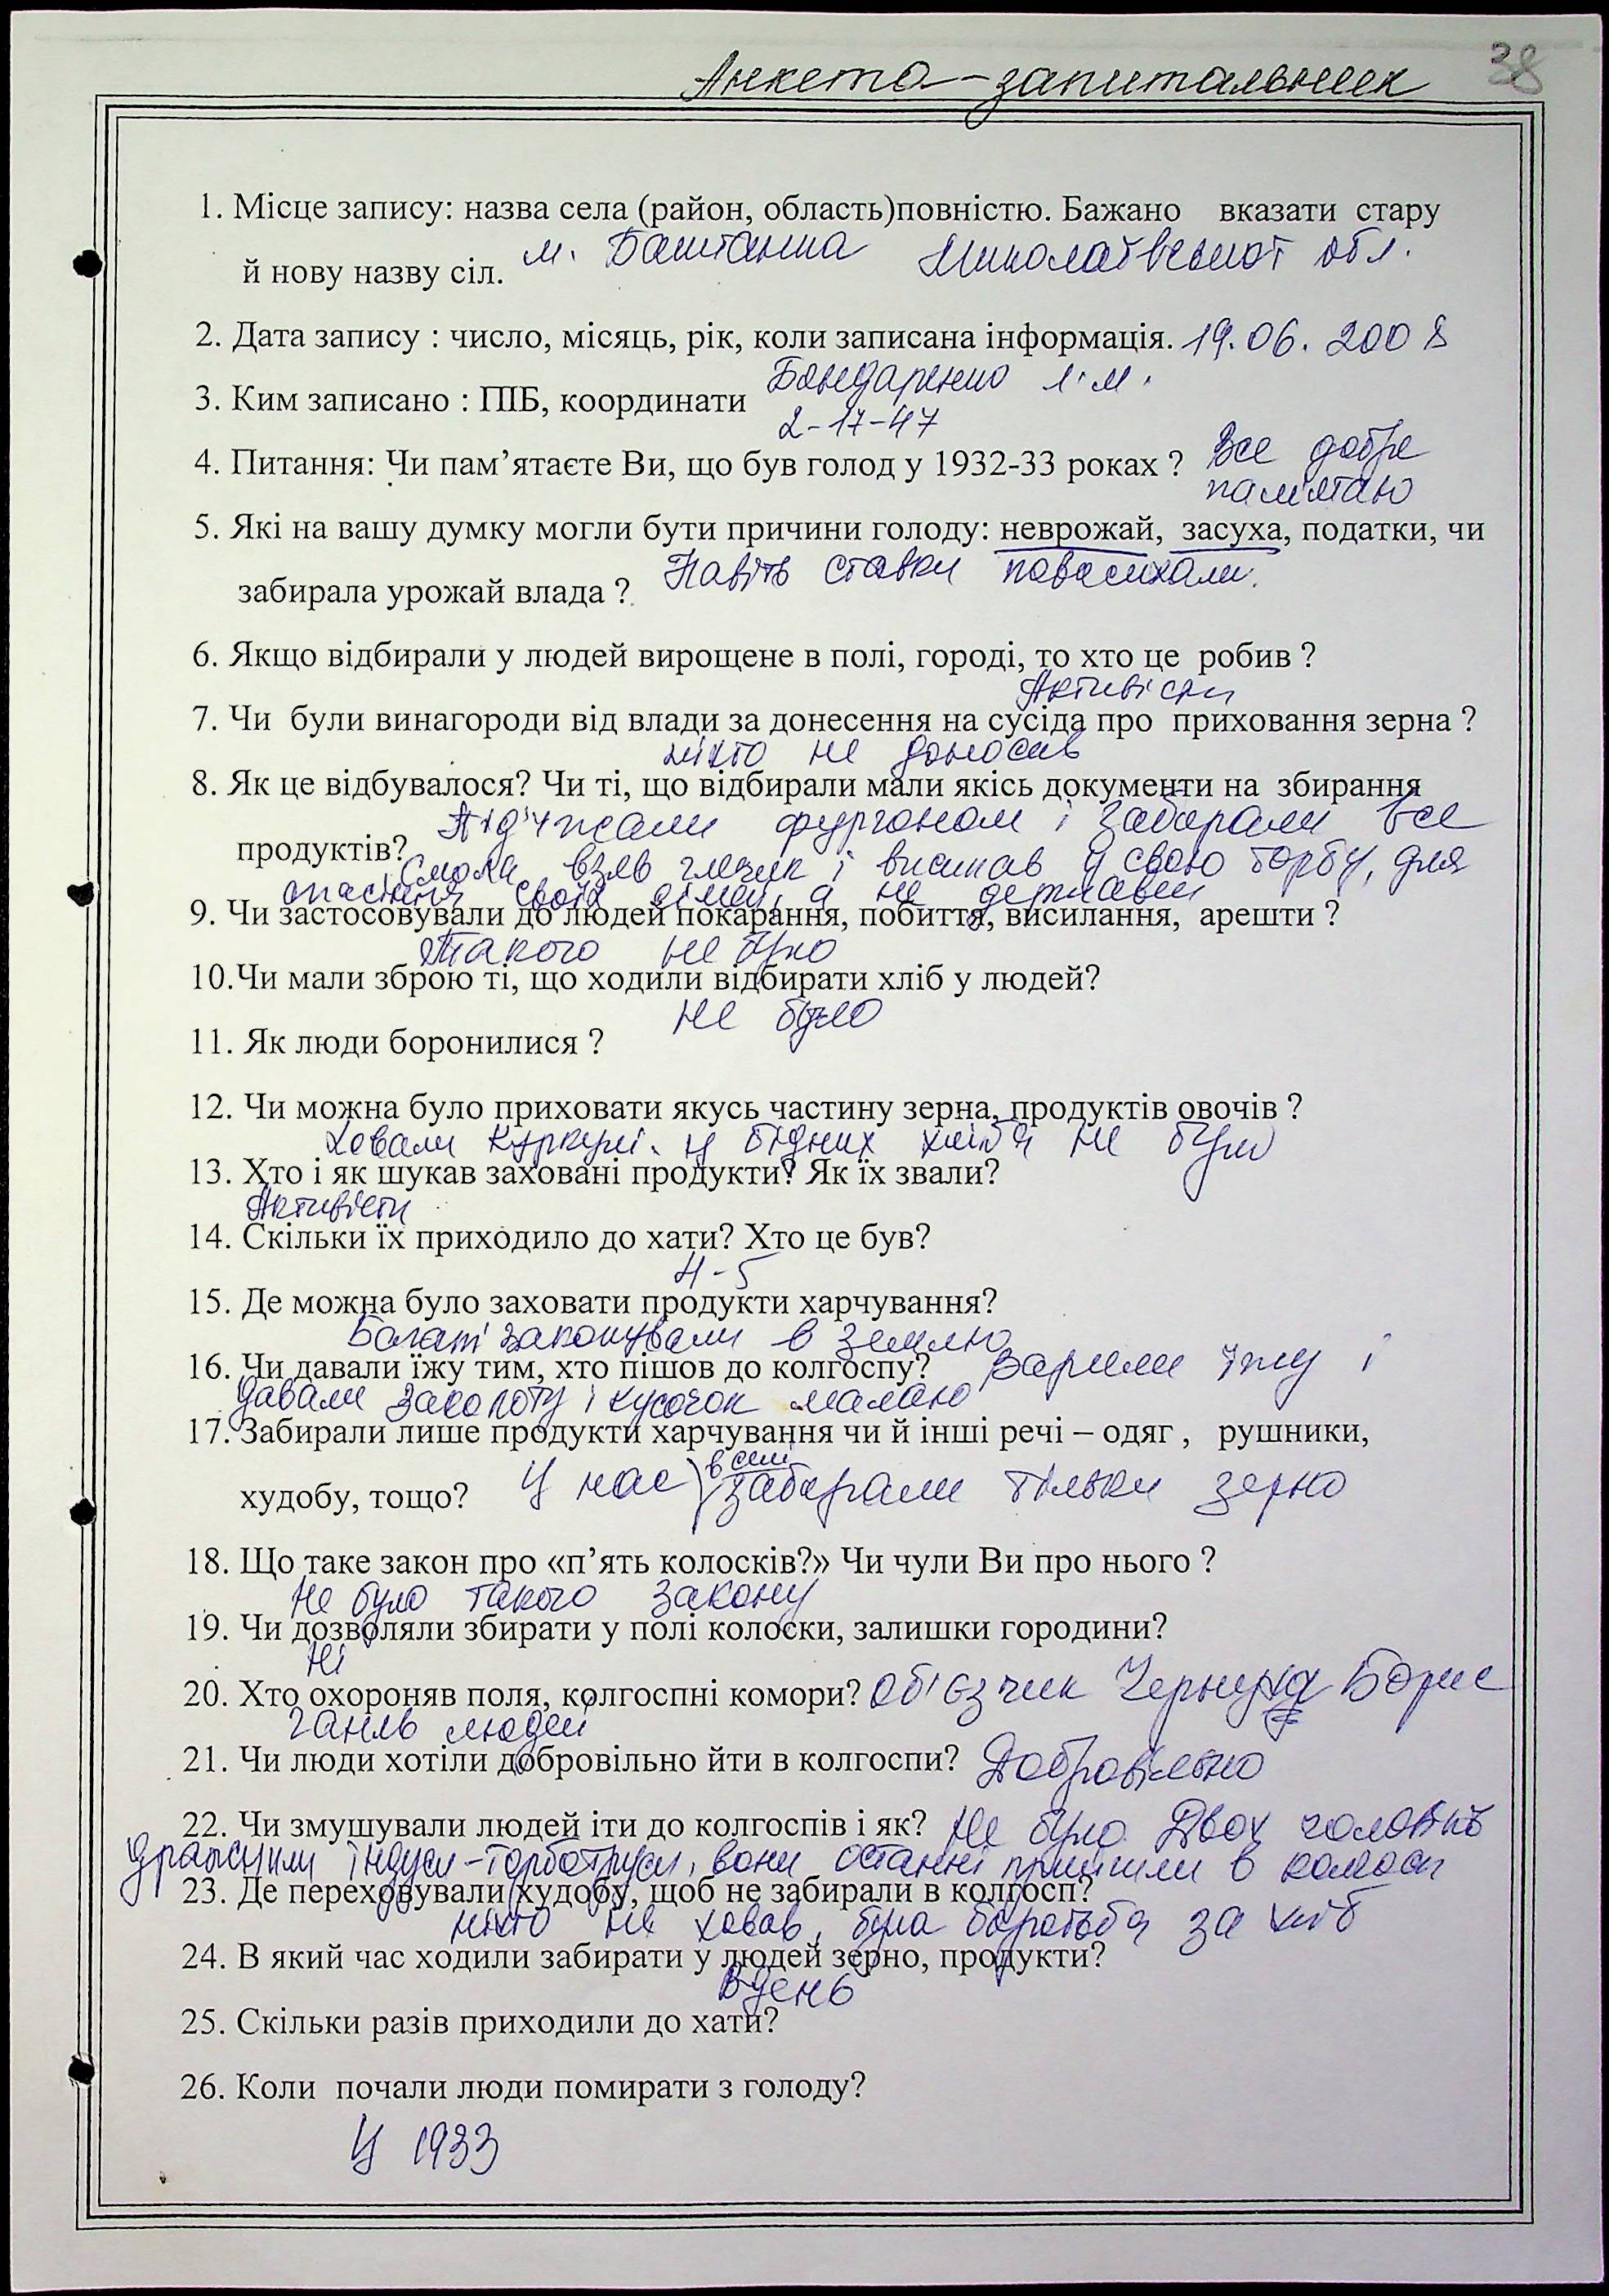 38
Анкета-запитальник
1. Місце запису: назва села (район, область)повністю. Бажано вказати стару
й нову назву сіл. м. Баштанка Миколаївської обл.
2. Дата запису : число, місяць, рік, коли записана інформація. 19.06.2008
3. Ким записано : ПІБ, координати Бондаренко Л.М.
2-17-47
4. Питання: Чи пам’ятаєте Ви, що був голод у 1932-33 роках ? Все добре
памятаю
5. Які на вашу думку могли бути причини голоду: неврожай, засуха, податки, чи
забирала урожай влада ? Навіть ставки повасихали.
6. Якщо відбирали у людей вирощене в полі, городі, то хто це робив ?
Активісти
7. Чи були винагороди від влади за донесення на сусіда про приховання зерна ?
ніхто не доносив
8. Як це відбувалося? Чи ті, що відбирали мали якісь документи на збирання
продуктів? Під'їжали фургоном і забирали все
взяв глечик і висипав у свою торбу, для
спасіння своїх дітей, а не держави
9. Чи застосовували до людей покарання, побиття, висилання, арешти ?
Такого не було
10.Чи мали зброю ті, що ходили відбирати хліб у людей?
Не було
11. Як люди боронилися ?
12. Чи можна було приховати якусь частину зерна, продуктів овочів ?
Ховали куркулі. у бідних хліба не було
13. Хто і як шукав заховані продукти? Як їх звали?
Активісти
14. Скільки їх приходило до хати? Хто це був?
4-5
15. Де можна було заховати продукти харчування?
Багаті закопували в землю
16. Чи давали їжу тим, хто пішов до колгоспу? Варили їжу і
давали заколоту і кусочок малаю
17. Забирали лише продукти харчування чи й інші речі – одяг , рушники,
худобу, тощо? У нас в селі забирали тільки зерно
18. Що таке закон про «п’ять колосків?» Чи чули Ви про нього ?
Не було такого закону
19. Чи дозволяли збирати у полі колоски, залишки городини?
Ні
20. Хто охороняв поля, колгоспні комори? Об'єзчик Борис
ганяв людей
21. Чи люди хотіли добровільно йти в колгоспи? Добровільно
22. Чи змушували людей іти до колгоспів і як? Не було. Двох чоловік
дражнили індуси-торботруси, вони останні прийшли в колгосп
23. Де переховували худобу, щоб не забирали в колгосп?
ніхто не ховав, була боротьба за хліб
24. В який час ходили забирати у людей зерно, продукти?
Вдень
25. Скільки разів приходили до хати?
26. Коли почали люди помирати з голоду?
У 1933